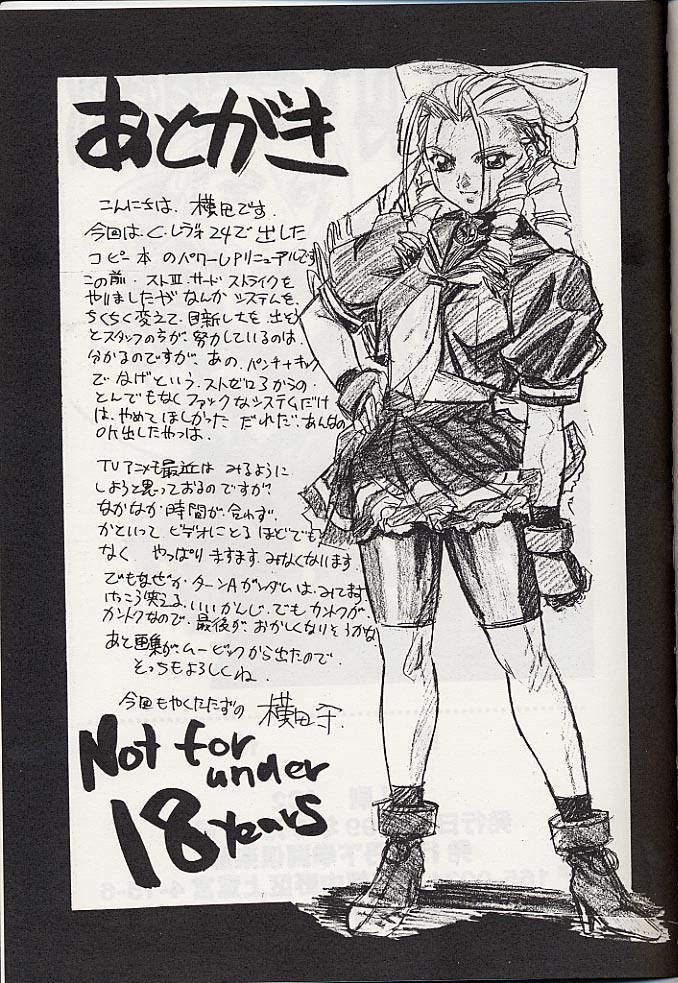 あとがき
こんにちは、横田です。
今回は、C・レヴォ24で出した
コピー本のパワーUPリニューアルです
この前・ストⅢ・サードストライクを
やりましたがなんかシステムを、
ちくちく変えて・目新しさを・出そう
とスタッフの方が、努力しているのは、
分かるのですが、あの、パンチ+キック
でなげという、ストゼロ3からの・
とんでもなくファックなシステムだけ
は、やめてほしかった だれだ、あんなの
OK出したやつは、
TVアニメも最近は みるように
しようと思っておるのですが、
なかなか時間が合わず・
かといって ビデオにとるほどでも
なく やっぱりますますみなくなります
でもなぜか ターンAガンダムは、みてます
けっこう笑える、いいかんじ、でもカントクが、
カントクなので・最後が、おかしくなりそうかな、
あと画集がムービックから出たので・
そっちもよろしくね、
今回もやくたたずの 横田守
Not for
under
18 years